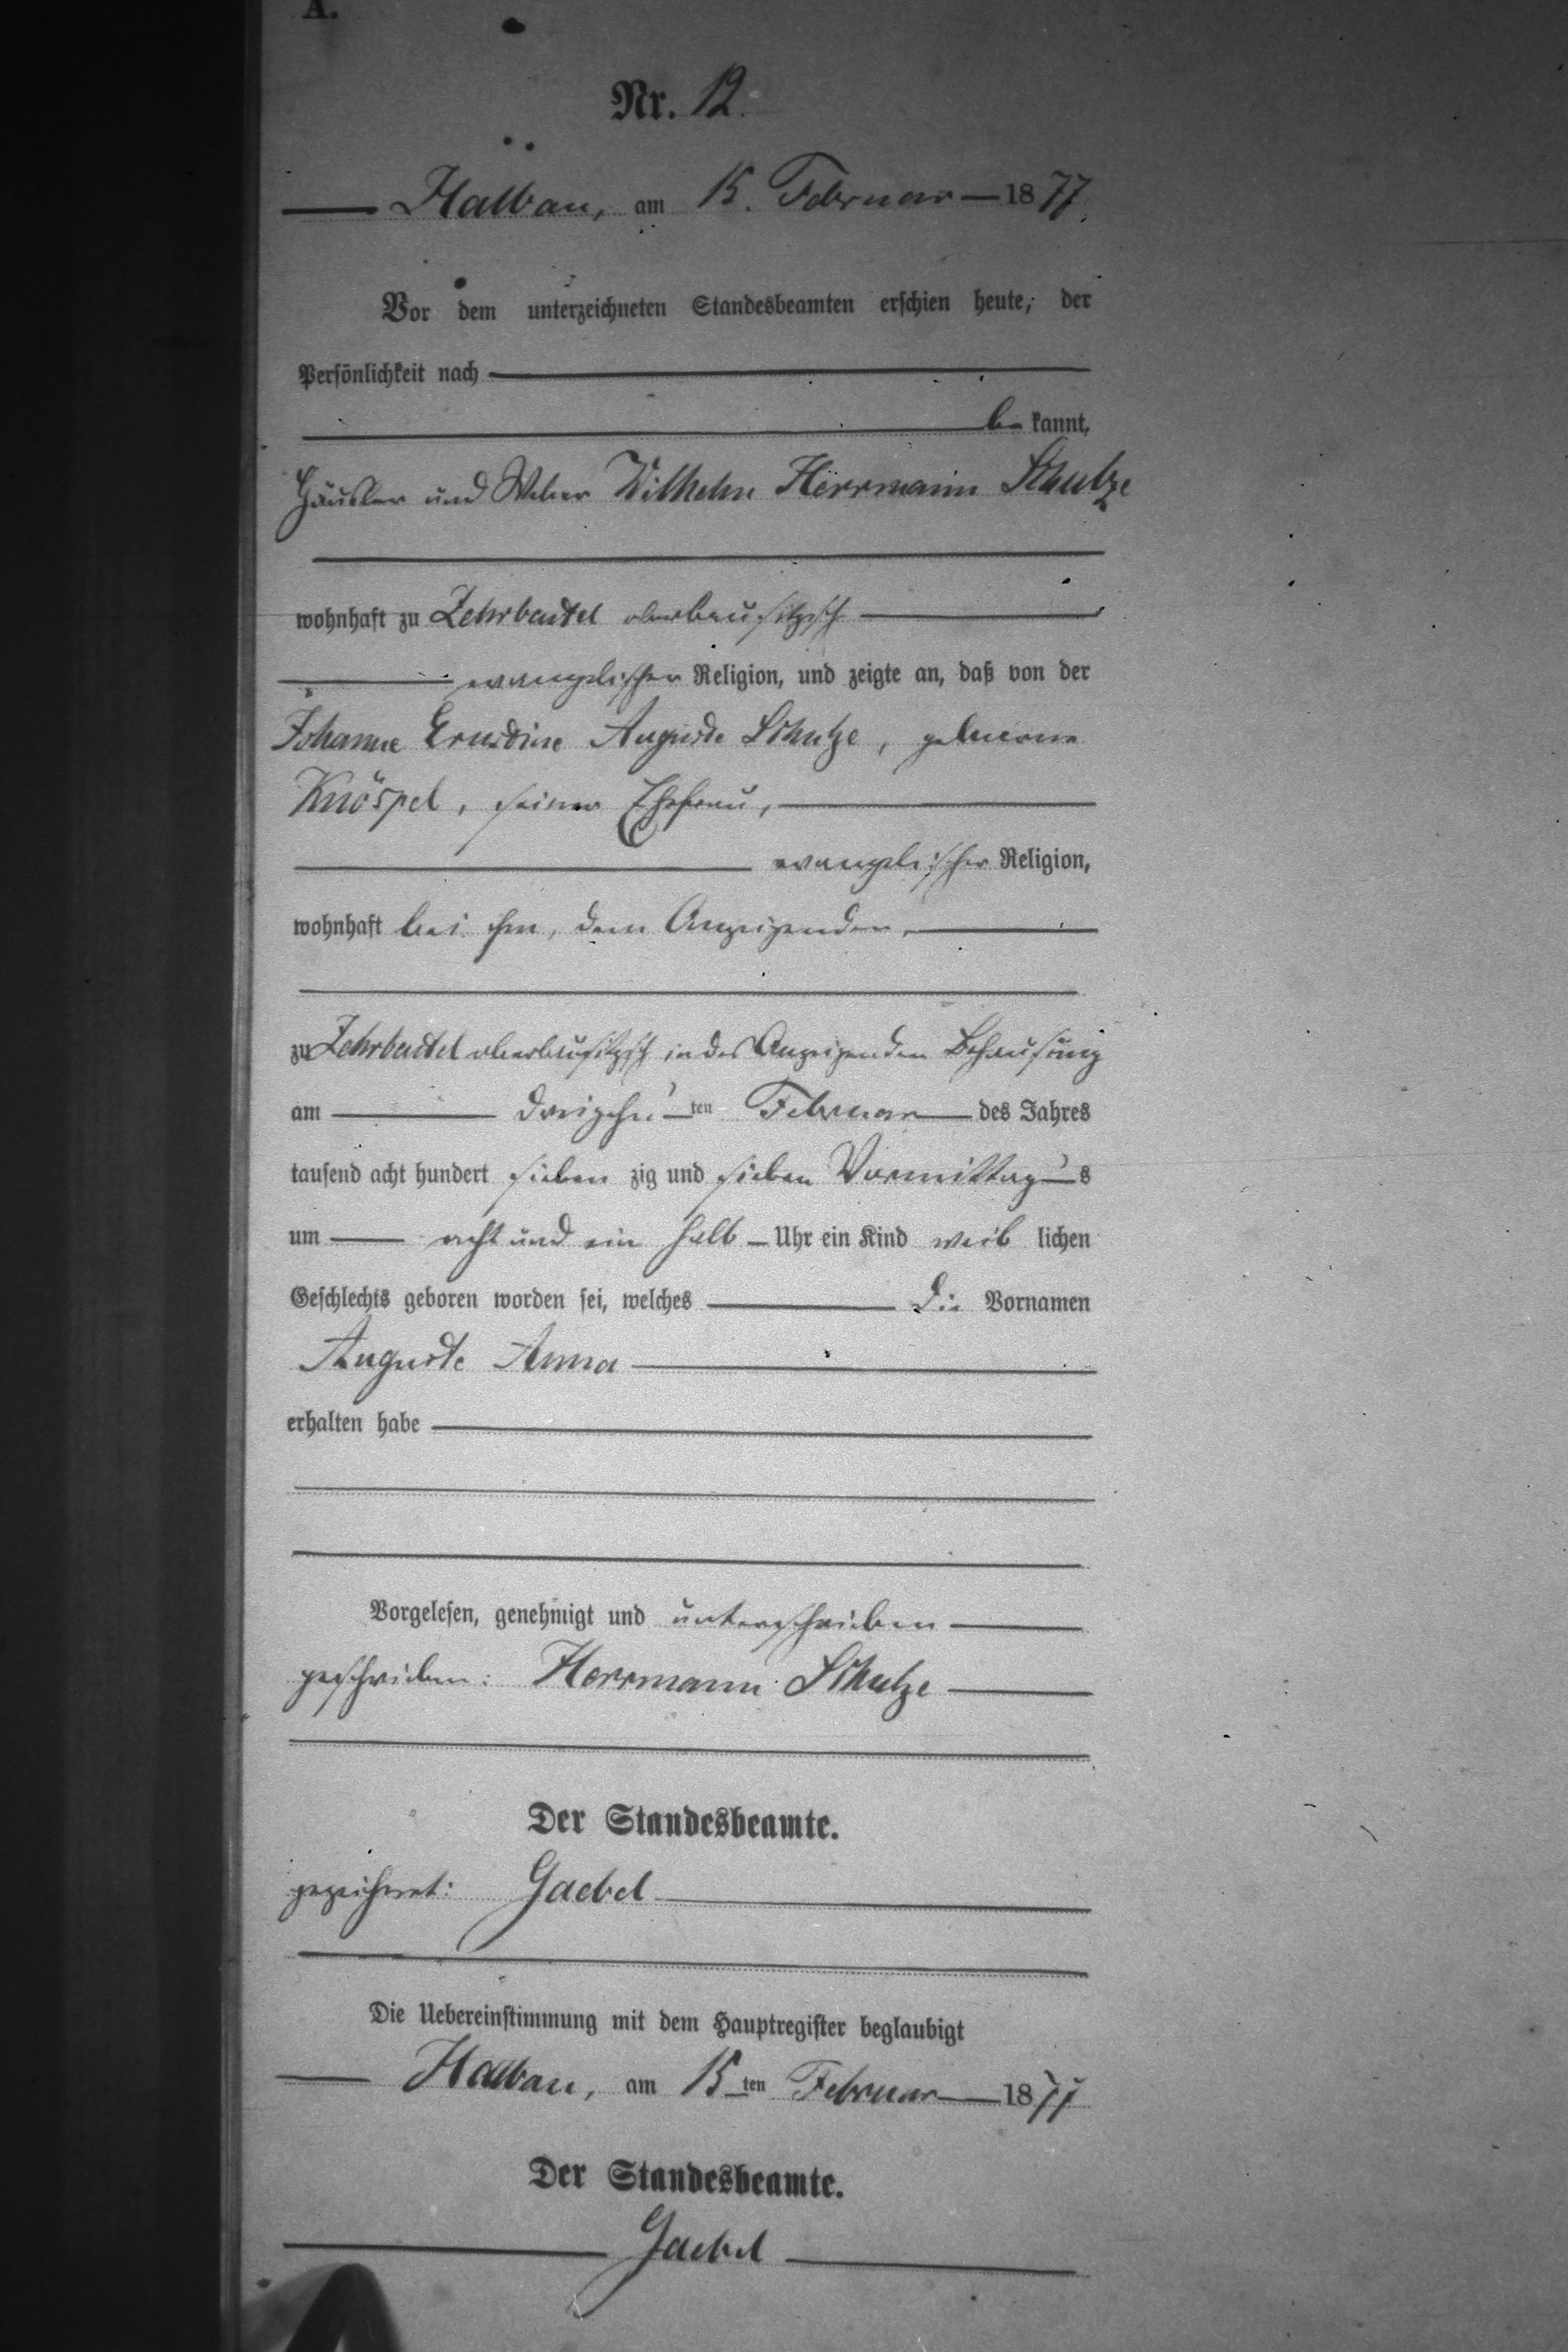 A.
Nr. 12.
Halbau, am 15. Februar 1877.
Vor dem unterzeichneten Standesbeamten erschien heute, der
Persönlichkeit nach
be kannt,
Häusler und Weber Wilhelm Herrmann Schulze
wohnhaft zu Zehrbeutel oberlausitzisch
evangelischer Religion, und zeigte an, daß von der
Johanne Ernestine Auguste Schulze, geborene
Knöspel, seiner Ehefrau,
evangelischer Religion,
wohnhaft bei ihm, dem Anzeigenden,
zu Zehrbeutel oberlausitzisch in des Anzeigenden Behausung
am dreizehnten Februar des Jahres
tausend acht hundert sieben zig und sieben Vormittags
um acht und ein halb Uhr ein Kind weib lichen
Geschlechts geboren worden sei, welches die Vornamen
Auguste Anna
erhalten habe
Vorgelesen, genehmigt und unterschrieben
geschrieben: Herrmann Schulze
Der Standesbeamte.
gezeichnet: Gaebel
Die Uebereinstimmung mit dem Hauptregister beglaubigt
Halbau, am 15ten Februar 1877
Der Standesbeamte.
Gaebel